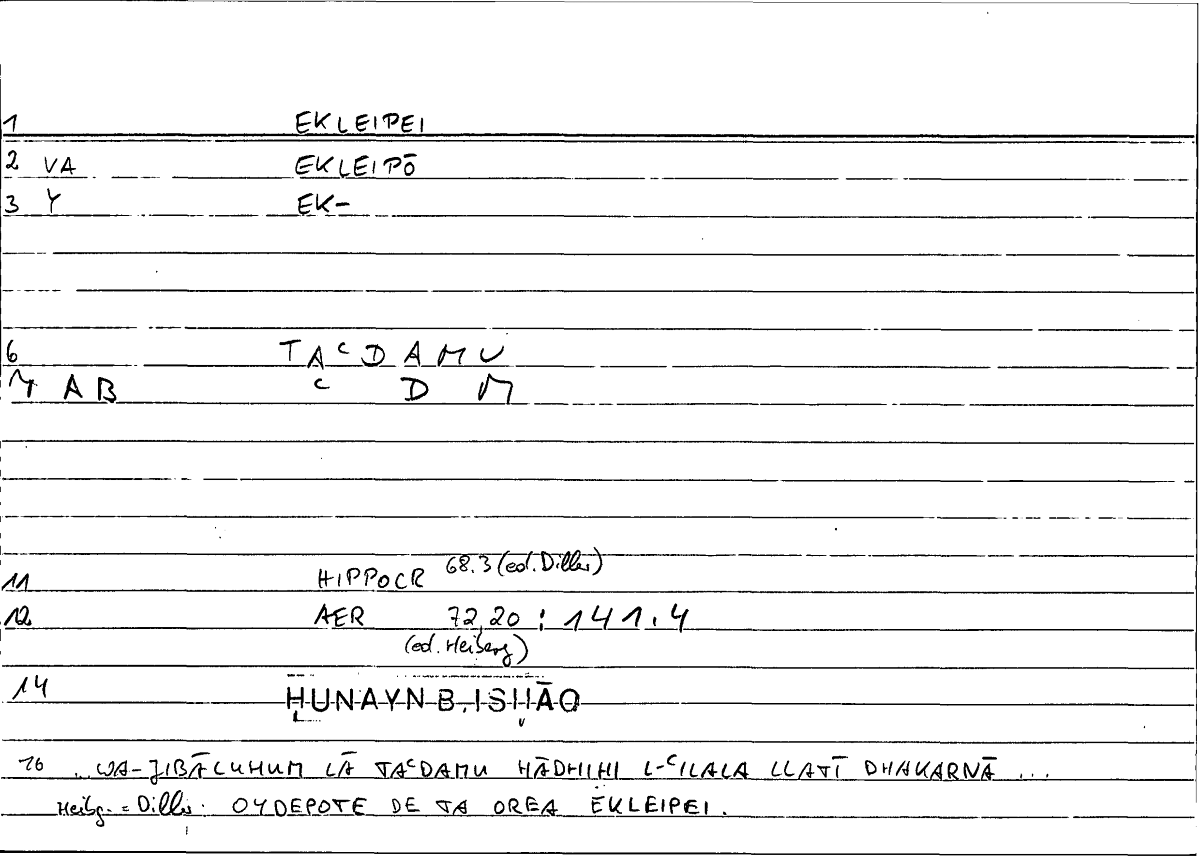 1 EKLEIPEI
2 VA EKLEIPŌ
3 Y EK-
6 TAᶜDAMU
7 AB ᶜ D M
11 HIPPOCR 68.3 (ed. Diller)
12 AER 72,20 : 141.4
(ed. Heiberg)
14 ḤUNAYN B. ISḤĀQ
16 .. WA-JIBĀLUHUM LĀ TAᶜDAMU HĀDHIHI L-ᶜILALA LLATĪ DHAKARNĀ ...
Heibg. = Diller: OYDEPOTE DE TA OREA EKLEIPEI.